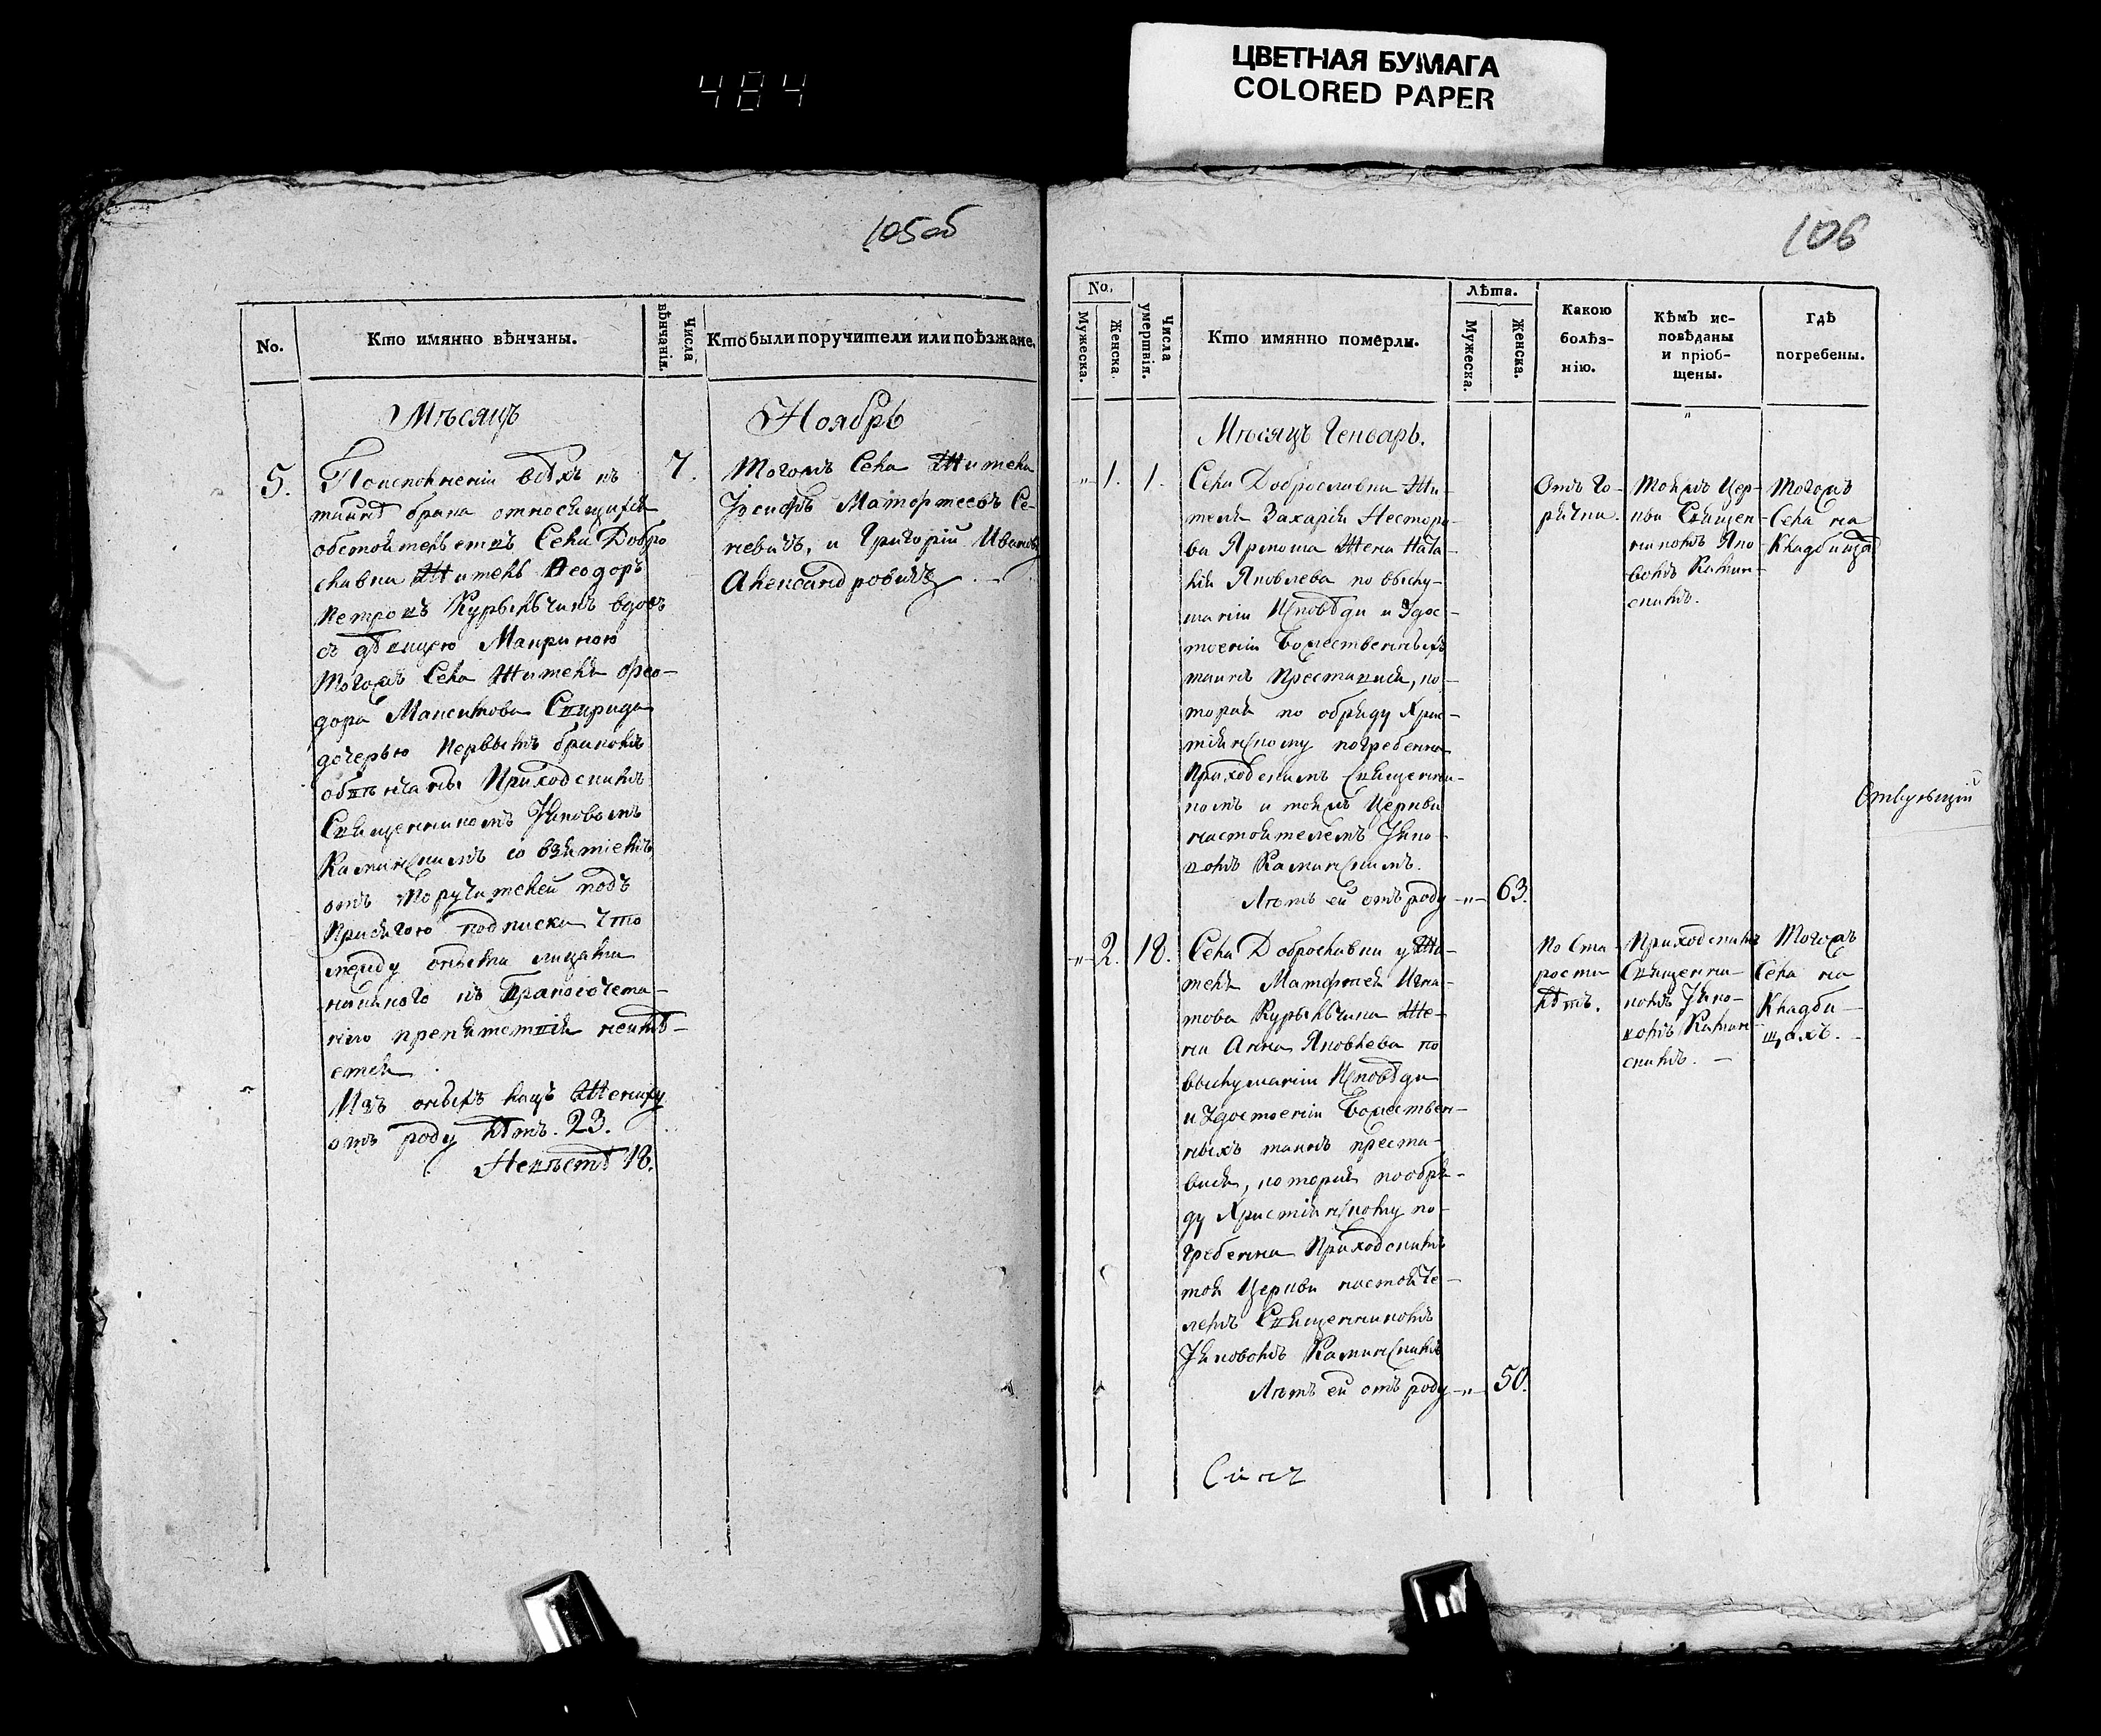 484
ЦВЕТНАЯ БУМАГА
COLORED PAPER
105об
No.
Кто имянно вѣнчаны.
Числа вѣнчанія.
Кто были поручители или поѣзжане.
Мѣсяцъ
Ноябрь
5.
По исполненіи всѣхъ къ
тайнѣ брака относящихся
обстоятельствъ Села Добро
славки Житель Ѳеодоръ
Петровъ Курыльчикъ вдовъ
съ дѣвицею Макриною
тогожъ Села Жителя Ѳео-
дора Максимова Свирида
дочерью первымъ бракомъ
обвѣнчаны Приходскимъ
Священникомъ Іяковомъ
Каминскимъ со взятіемъ
отъ Поручителей подъ
Присягою подписки что
между оными лицами
никакого къ Бракосочета-
нію препятствія неимѣ-
ется
Изъ оныхъ лицъ Жениху
отъ роду лѣтъ. 23.
Невѣстѣ 18.
7.
тогожъ Села Жители
Іосифъ Матфтеевъ Се-
невичъ, и Григорій Ивановъ
Александровичъ
106
No.
Мужеска.
Женска.
Числа умертвія.
Кто имянно померли.
Лѣта.
Мужеска.
Женска.
Какою
болѣз-
нію.
Кѣмъ ис-
повѣданы
и пріоб-
щены.
Гдѣ
погребены.
Мѣсяцъ Генварь.
1.
1.
Села Доброславки Жи-
теля Захарія Нестеро-
ва Ярмоша Жена Ната-
лія Яковлева по выслу-
шаніи Исповѣди и Удос-
тоеніи Божественныхъ
таинъ Преставися, ко-
торая по обряду Хрис-
тіянскому погребенна
Приходскимъ Священни-
комъ и тояжъ Церкви
настоятелемъ Іяко-
вомъ Каминскимъ.
Лѣтъ ей отъ роду
63.
Отъ Го-
рячки.
тояжъ Цер-
кви Священ-
никомъ Яко-
вомъ Камин-
скимъ.
тогожъ
Села на
Кладбищѣ
Отвулящій
2.
18.
Села Доброславки у Жи-
теля Матфтея Игна-
това Курыльчика Же-
на Анна Яковлева по
выслушаніи Исповѣди
и Удостоеніи Божествен-
ныхъ таинъ преста-
вися, которая по обря-
ду Христіянскому по-
гребенна Приходскимъ
тоя Церкви настояте-
лемъ Священникомъ
Іяковомъ Каминскимъ
Лѣтъ ей отъ роду
50.
По Ста-
рости
лѣтъ.
Приходскимъ
Священни-
комъ Іяко-
вомъ Камин-
скимъ.
тогожъ
Села на
Кладби-
щахъ.